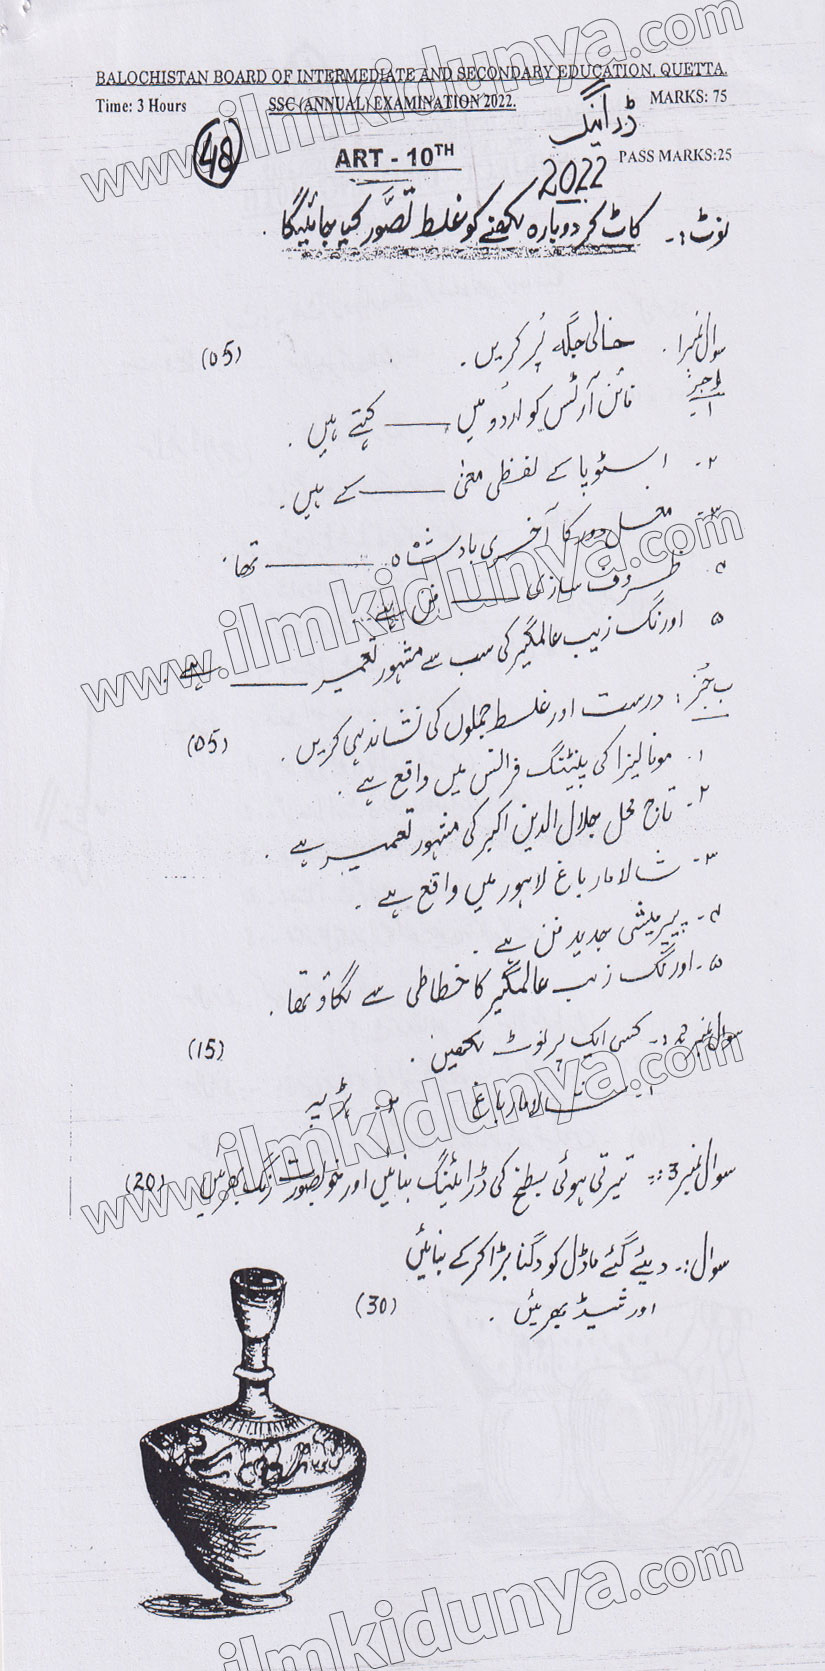 www.ilmkidunya.com
BALOCHISTAN BOARD OF INTERMEDIATE AND SECONDARY EDUCATION, QUETTA.
Time: 3 Hours SSC (ANNUAL) EXAMINATION 2022. MARKS: 75
48 ART - 10TH ڈرائنگ 2022 PASS MARKS:25
نوٹ:۔ کاٹ کر دوبارہ لکھنے کو غلط تصوّر کیا جائیگا۔
سوال نمبر 1. خالی جگہ پُر کریں۔ (05)
ا جز:
۱۔ فائن آرٹس کو اردو میں ____ کہتے ہیں۔
۲۔ اسٹوپا کے لفظی معنیٰ ____ کے ہیں۔
۳۔ مغل دور کا آخری بادشاہ ____ تھا۔
۴۔ ظروف سازی ____ فن ہے۔
۵ اورنگ زیب عالمگیر کی سب سے مشہور تعمیر ____ ہے۔
www.ilmkidunya.com
ب جُز: درست اور غلط جملوں کی نشاندہی کریں۔ (05)
۱۔ مونالیزا کی پینٹنگ فرانس میں واقع ہے۔
۲۔ تاج محل جلال الدین اکبر کی مشہور تعمیر ہے۔
۳۔ شالامار باغ لاہور میں واقع ہے۔
۴۔ پیپرمیشی جدید فن ہے۔
۵۔ اورنگ زیب عالمگیر کا خطاطی سے لگاؤ تھا۔
سوال نمبر 2:۔ کسی ایک پر نوٹ لکھیں۔ (15)
۱۔ شالامار باغ ۲۔ ہڑپہ
www.ilmkidunya.com
سوال نمبر 3:۔ تیرتی ہوئی بطخ کی ڈرائینگ بنائیں اور خوبصورت رنگ بھریں (20)
سوال:۔ دیئے گئے ماڈل کو دگنا بڑا کر کے بنائیں
اور شیڈ بھریں۔ (30)
ilmkidunya.com